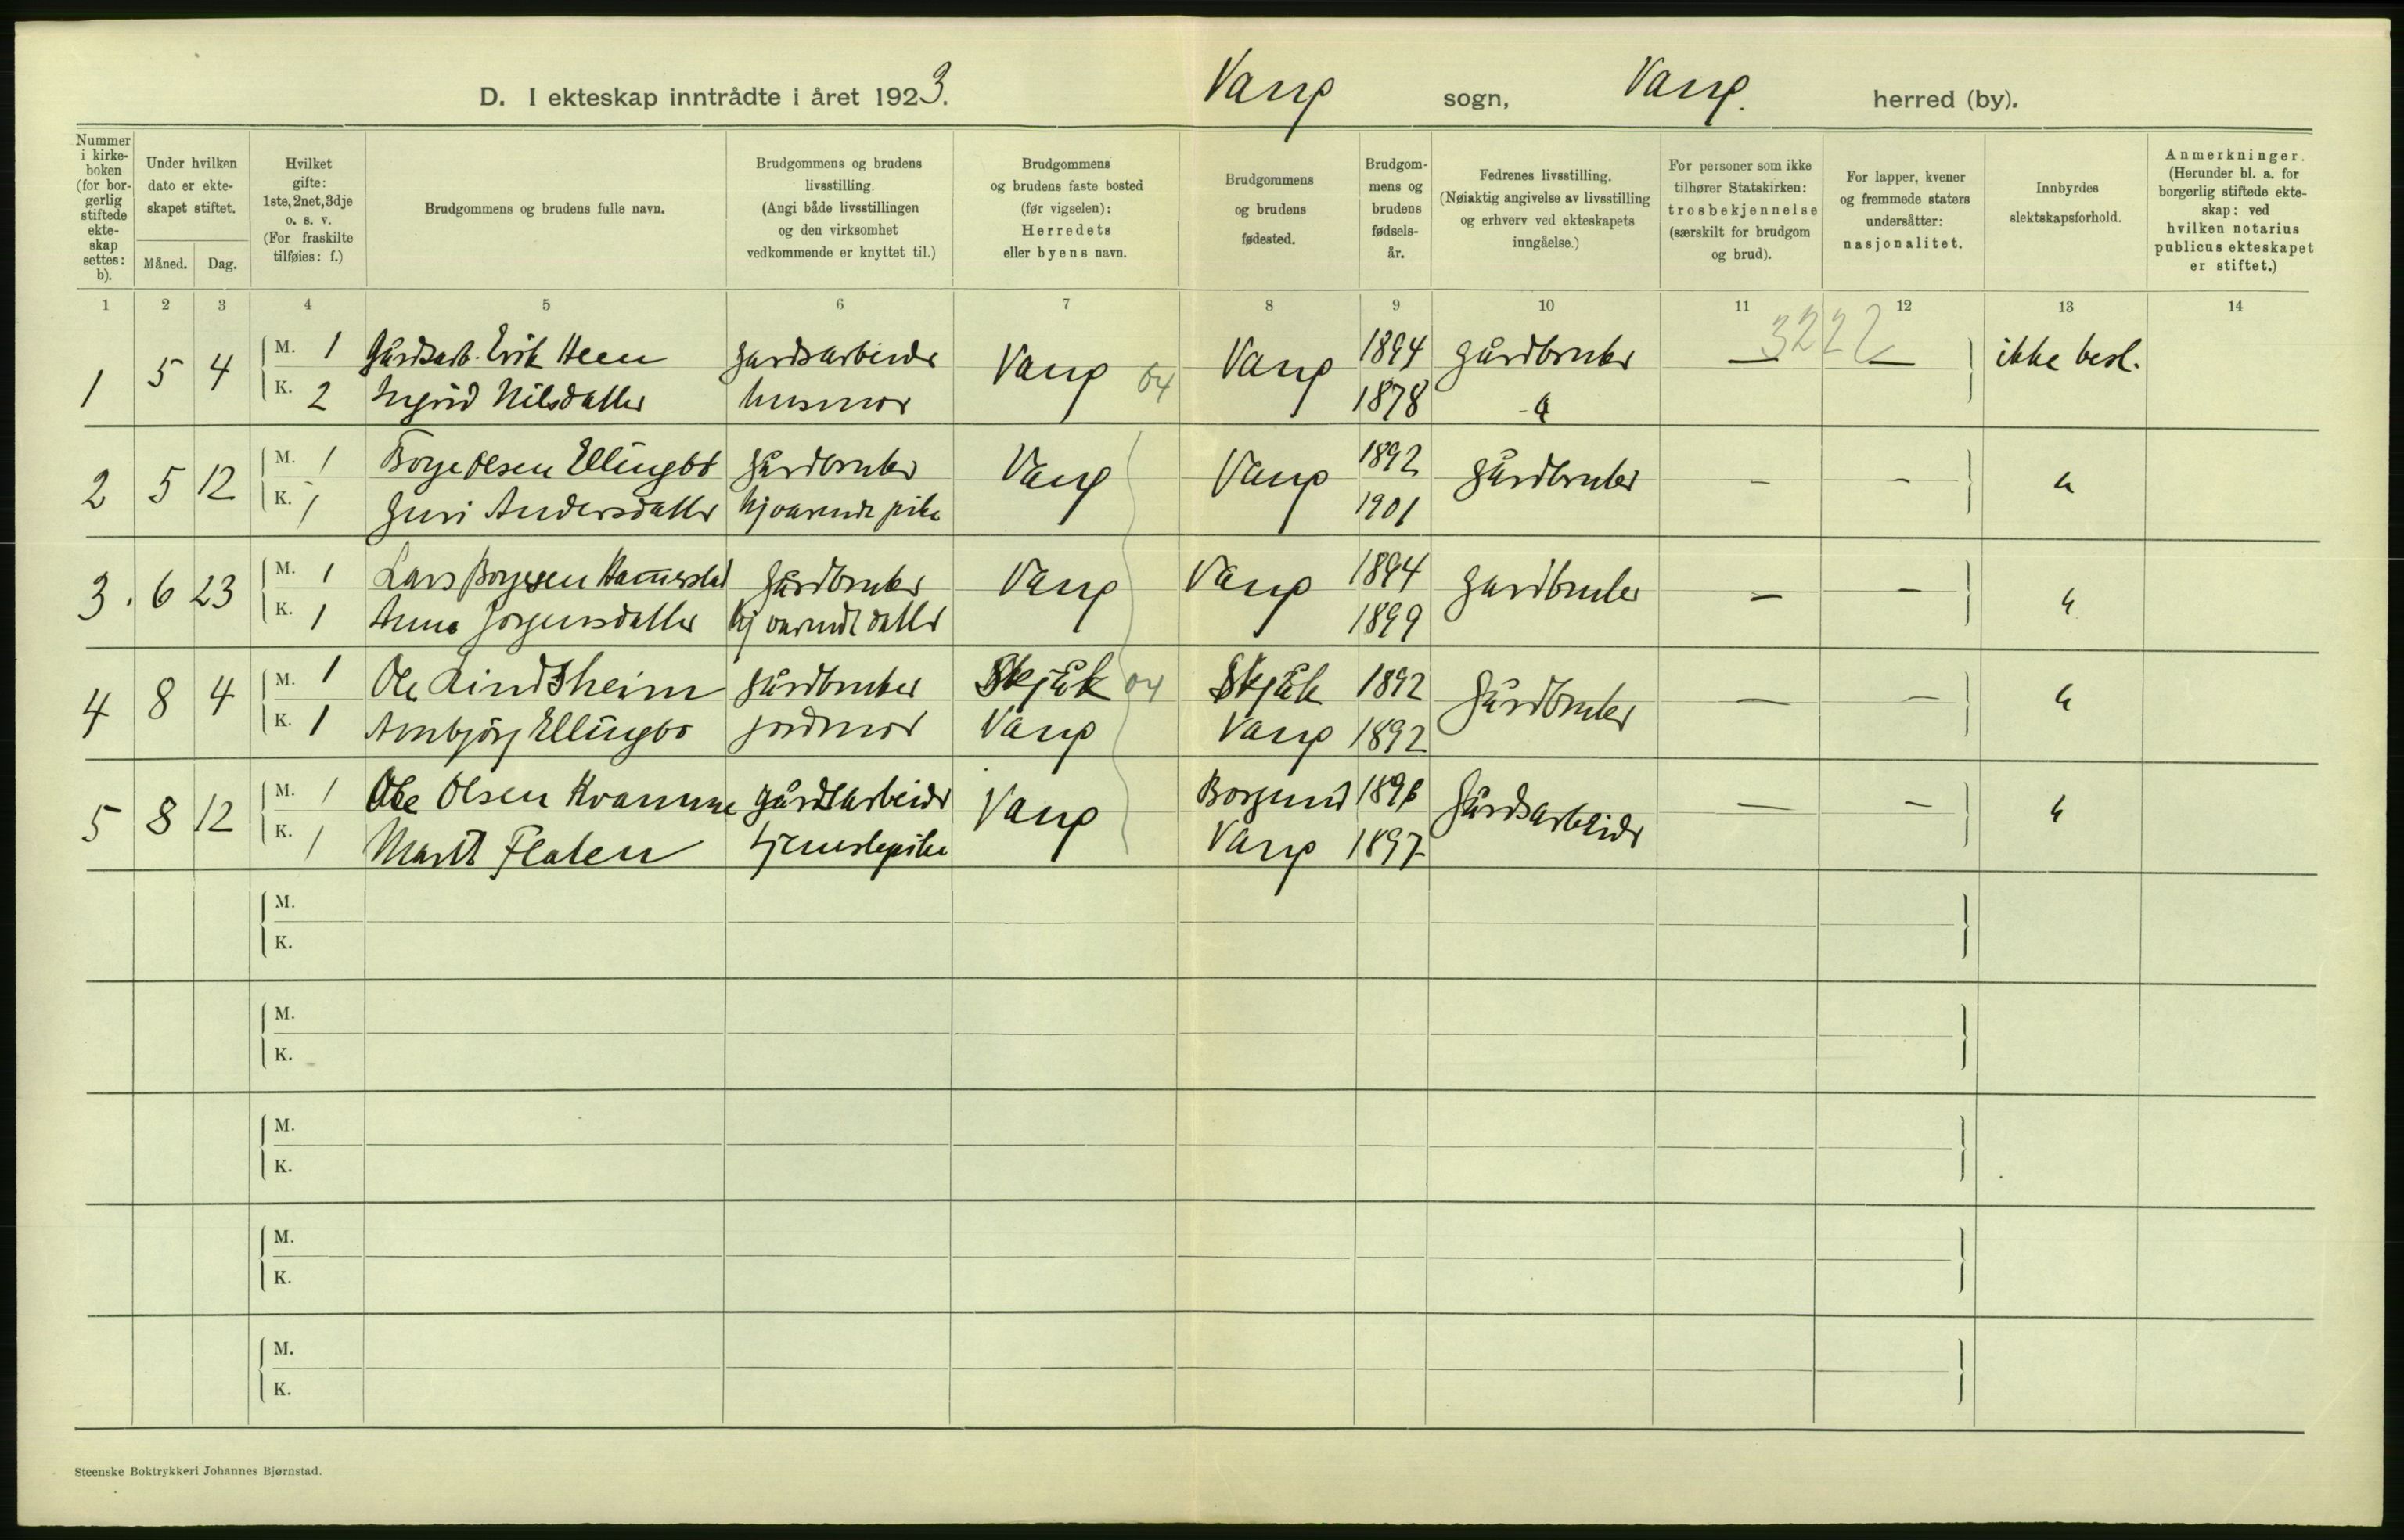 D. I ekteskap inntrådte i året 1923. Vang sogn, Vang. herred (by).
Nummer i kirke-boken (for bor-gerlig stiftede ekte-skap settes: b).
Under hvilken dato er ekte-skapet stiftet.
Måned. Dag.
Hvilket gifte: 1ste, 2net, 3dje o. s. v. (For fraskilte tilføies: f.)
Brudgommens og brudens fulle navn.
Brudgommens og brudens livsstilling. (Angi både livsstillingen og den virksomhet vedkommende er knyttet til.)
Brudgommens og brudens faste bosted (før vigselen): Herredets eller byens navn.
Brudgommens og brudens fødested.
Brudgom-mens og brudens fødsels-år.
Fedrenes livsstilling. (Nøiaktig angivelse av livsstilling og erhverv ved ekteskapets inngåelse.)
For personer som ikke tilhører Statskirken: trosbekjennelse (særskilt for brudgom og brud).
For lapper, kvener og fremmede staters undersåtter: nasjonalitet.
Innbyrdes slektskapsforhold.
Anmerkninger. (Herunder bl. a. for borgerlig stiftede ekte-skap: ved hvilken notarius publicus ekteskapet er stiftet.)
1 2 3 4 5 6 7 8 9 10 11 12 13 14
3222
1 5 4 M. 1 Gårdsarb. Erik Heen gardsarbeider Vang 04 Vang 1894 gårdbruker — — ikke besl.
K. 2 Ingrid Nilsdatter husmor 1878 - " -
2 5 12 M. 1 Borge Olsen Ellingbö gårdbruker Vang Vang 1892 gårdbruker - - "
K. 1 Guri Andersdatter hjværende pike 1901
3. 6 23 M. 1 Lars Borgesen Hamerstad gårdbruker Vang Vang 1894 gardbruker - - "
K. 1 Anna Jørgensdatter hjværende datter 1899
4 8 4 M. 1 Ole Lindsheim gårdbruker Skjåk 04 Skjåk 1892 Gårdbruker — - "
K. 1 Ambjørg Ellingbø jordmor Vang Vang 1892
5 8 12 M. 1 Ole Olsen Kvamme gårdsarbeider Vang Borgund 1896 Gårdsarbeider — - "
K. 1 Marit Flaten tjenestepike Vang 1897
M.
K.
M.
K.
M.
K.
M.
K.
M.
K.
Steenske Boktrykkeri Johannes Bjørnstad.